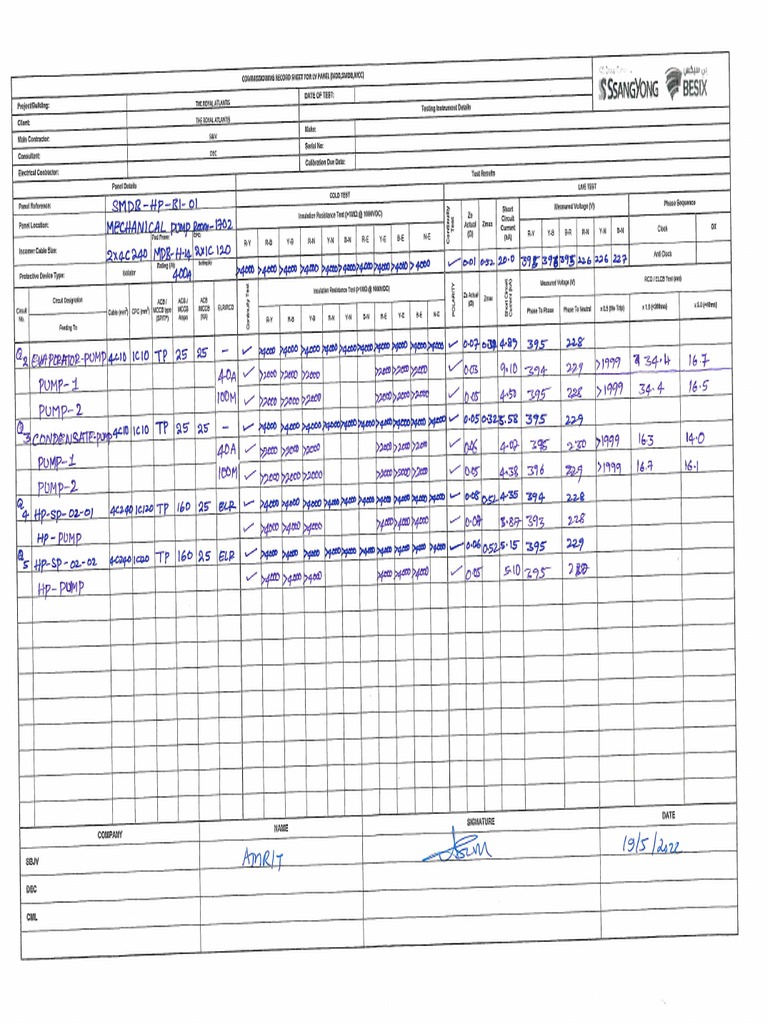 COMMISSIONING RECORD SHEET FOR LV PANEL (MDB,SMDB,MCC)
SSANGYONG BESIX
بي سيكس
Project/Building: THE ROYAL ATLANTIS DATE OF TEST:
Client: THE ROYAL ATLANTIS Testing Instrument Details
Main Contractor: SBJV Make:
Consultant: DEC Serial No:
Electrical Contractor: Calibration Due Date:
Panel Details Test Results
COLD TEST LIVE TEST
Panel Reference: SMDB-HP-B1-01
Panel Location: MECHANICAL PUMP ROOM-1702
Incomer Cable Size: 2X4C240 Fed From: MDB-H-14 CPC: 2X1C 120
Protective Device Type: Isolator Rating (A): 400A
Insulation Resistance Test (>10MΩ @ 1000VDC) Continuity Test Zs Actual (Ω) Zmax Short Circuit Current (kA) Measured Voltage (V) Phase Sequence
R-Y R-B Y-B R-N Y-N B-N R-E Y-E B-E N-E R-Y Y-B B-R R-N Y-N B-N Clock
Anti Clock
>4000 >4000 >4000 >4000 >4000 >4000 >4000 >4000 >4000 >4000 ✓ 0.01 0.52 20.0 395 226 226 227
Circuit No. Circuit Designation Feeding To Cable (mm²) CPC (mm²) ACB / MCCB type (SP/TP) ACB / MCCB Amps ACB MCCB (KA) ELR/RCD Continuity Test Insulation Resistance Test (>1MΩ @ 1000VDC) POLARITY Zs Actual (Ω) Zmax Short Circuit Current (kA) Measured Voltage (V) RCD / ELCB Test (ms)
R-Y R-B Y-B R-N Y-N B-N R-E Y-E B-E N-E Phase To Phase Phase To Neutral x 0.5 (No Trip) x 1.0 (<300ms) x 5.0 (<40ms)
Q2 EVAPORATOR-PUMP 4C10 1C10 TP 25 25 - ✓ >4000 >4000 >4000 >4000 >4000 >4000 >4000 >4000 >4000 >4000 ✓ 0.07 4.89 395 228
PUMP-1 40A ✓ >2000 >2000 >2000 >2000 >2000 >2000 ✓ 0.03 9.10 394 229 >1999 34.4 16.7
PUMP-2 100M ✓ >2000 >2000 >2000 >2000 >2000 >2000 ✓ 0.05 4.50 395 228 >1999 34.4 16.5
Q3 CONDENSATE-PUMP 4C10 1C10 TP 25 25 - ✓ >4000 >4000 >4000 >4000 >4000 >4000 >4000 >4000 >4000 >4000 ✓ 0.05 0.32 5.58 395 229
PUMP-1 40A ✓ >2000 >2000 >2000 >2000 >2000 >2000 ✓ 4.07 395 230 >1999 16.3 14.0
PUMP-2 100M ✓ >2000 >2000 >2000 >2000 >2000 >2000 ✓ 0.05 4.38 396 229 >1999 16.7 16.1
Q4 HP-SP-02-01 4C240 1C120 TP 160 25 ELR ✓ >4000 >4000 >4000 >4000 >4000 >4000 >4000 >4000 >4000 >4000 ✓ 0.08 0.52 4.35 394 228
HP-PUMP ✓ >4000 >4000 >4000 >4000 >4000 >4000 ✓ 393 228
Q5 HP-SP-02-02 4C240 1C120 TP 160 25 ELR ✓ >4000 >4000 >4000 >4000 >4000 >4000 >4000 >4000 >4000 >4000 ✓ 0.06 0.52 5.15 395 229
HP-PUMP ✓ >4000 >4000 >4000 >4000 >4000 >4000 ✓ 0.05 5.10 395
COMPANY NAME SIGNATURE DATE
SBJV AMRIT 19/5/2022
DEC
CML